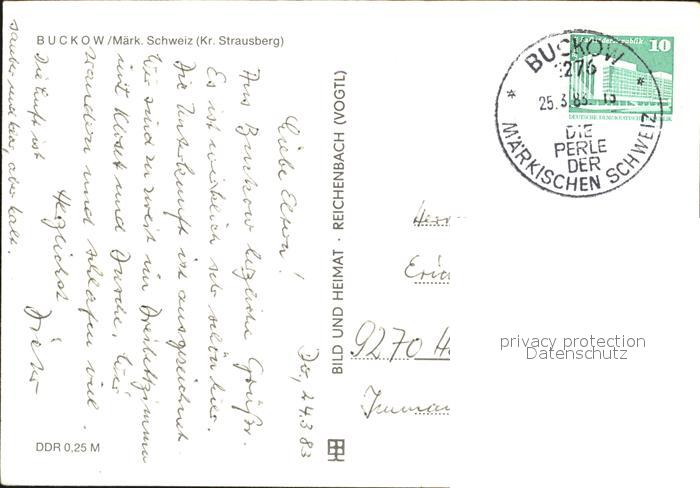 BUCKOW/Märk. Schweiz (Kr. Strausberg)
Do, 24.3.83
Liebe Eltern!
Aus Buckow herzliche Grüße.
Es ist wirklich sehr schön hier.
Die Unterkunft ist ausgezeichnet.
Wir sind zu zweit im Dreibettzimmer
mit Klosett und Dusche. Wir
wandern und schlafen viel.
Die Luft ist
sauber und klar, aber kalt.
Herzlichst
Dieter
DDR 0,25 M
BILD UND HEIMAT · REICHENBACH (VOGTL)
10
DEUTSCHE DEMOKRATISCHE
BUCKOW
1276
25.3.83
DIE
PERLE
DER
MÄRKISCHEN SCHWEIZ
Herr
9270
privacy protection
Datenschutz